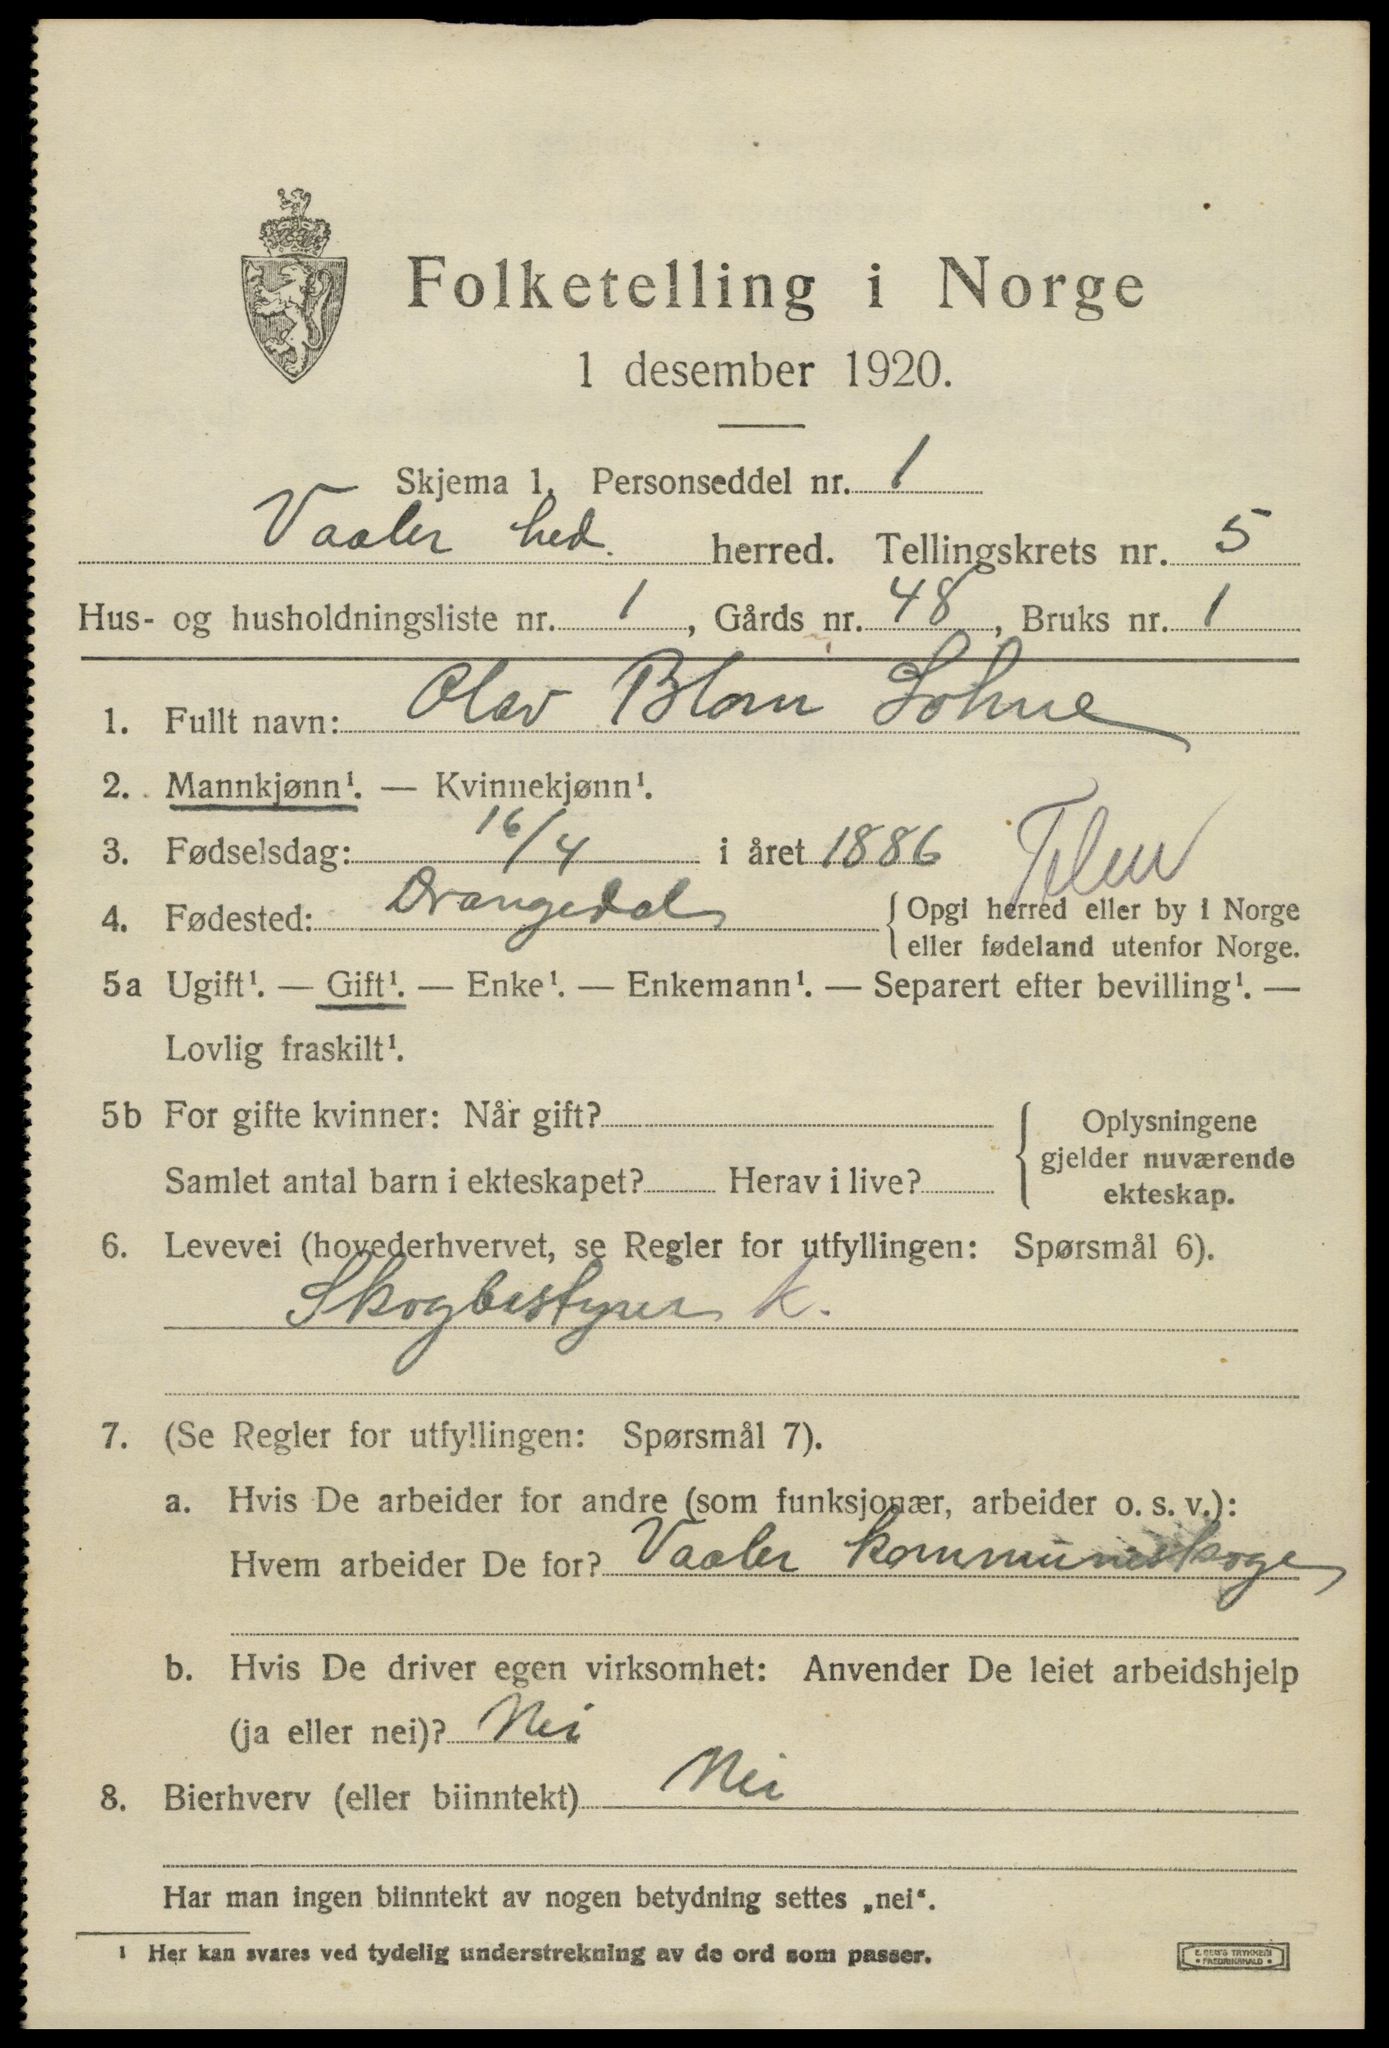 Folketelling i Norge
1 desember 1920.
Skjema 1. Personseddel nr. 1
Vaaler hed. herred. Tellingskrets nr. 5
Hus- og husholdningsliste nr. 1, Gårds nr. 48, Bruks nr. 1
1. Fullt navn: Olav Blom Lohne
2. Mannkjønn¹. — Kvinnekjønn¹.
3. Fødselsdag: 16/4 i året 1886 Telem
4. Fødested: Drangedal {Opgi herred eller by i Norge
eller fødeland utenfor Norge.
5a Ugift¹. — Gift¹. — Enke¹. — Enkemann¹. — Separert efter bevilling¹. —
Lovlig fraskilt¹.
5b For gifte kvinner: Når gift? { Oplysningene
gjelder nuværende
Samlet antal barn i ekteskapet? Herav i live? ekteskap.
6. Levevei (hovederhvervet, se Regler for utfyllingen: Spørsmål 6).
Skogbestyrer k.
7. (Se Regler for utfyllingen: Spørsmål 7).
a. Hvis De arbeider for andre (som funksjonær, arbeider o. s. v.):
Hvem arbeider De for? Vaaler kommuneskoge
b. Hvis De driver egen virksomhet: Anvender De leiet arbeidshjelp
(ja eller nei)? Nei
8. Bierhverv (eller biinntekt) Nei
Har man ingen biinntekt av nogen betydning settes „nei“.
1 Her kan svares ved tydelig understrekning av de ord som passer.
E. SEM'S TRYKKERI
• FREDRIKSHALD •